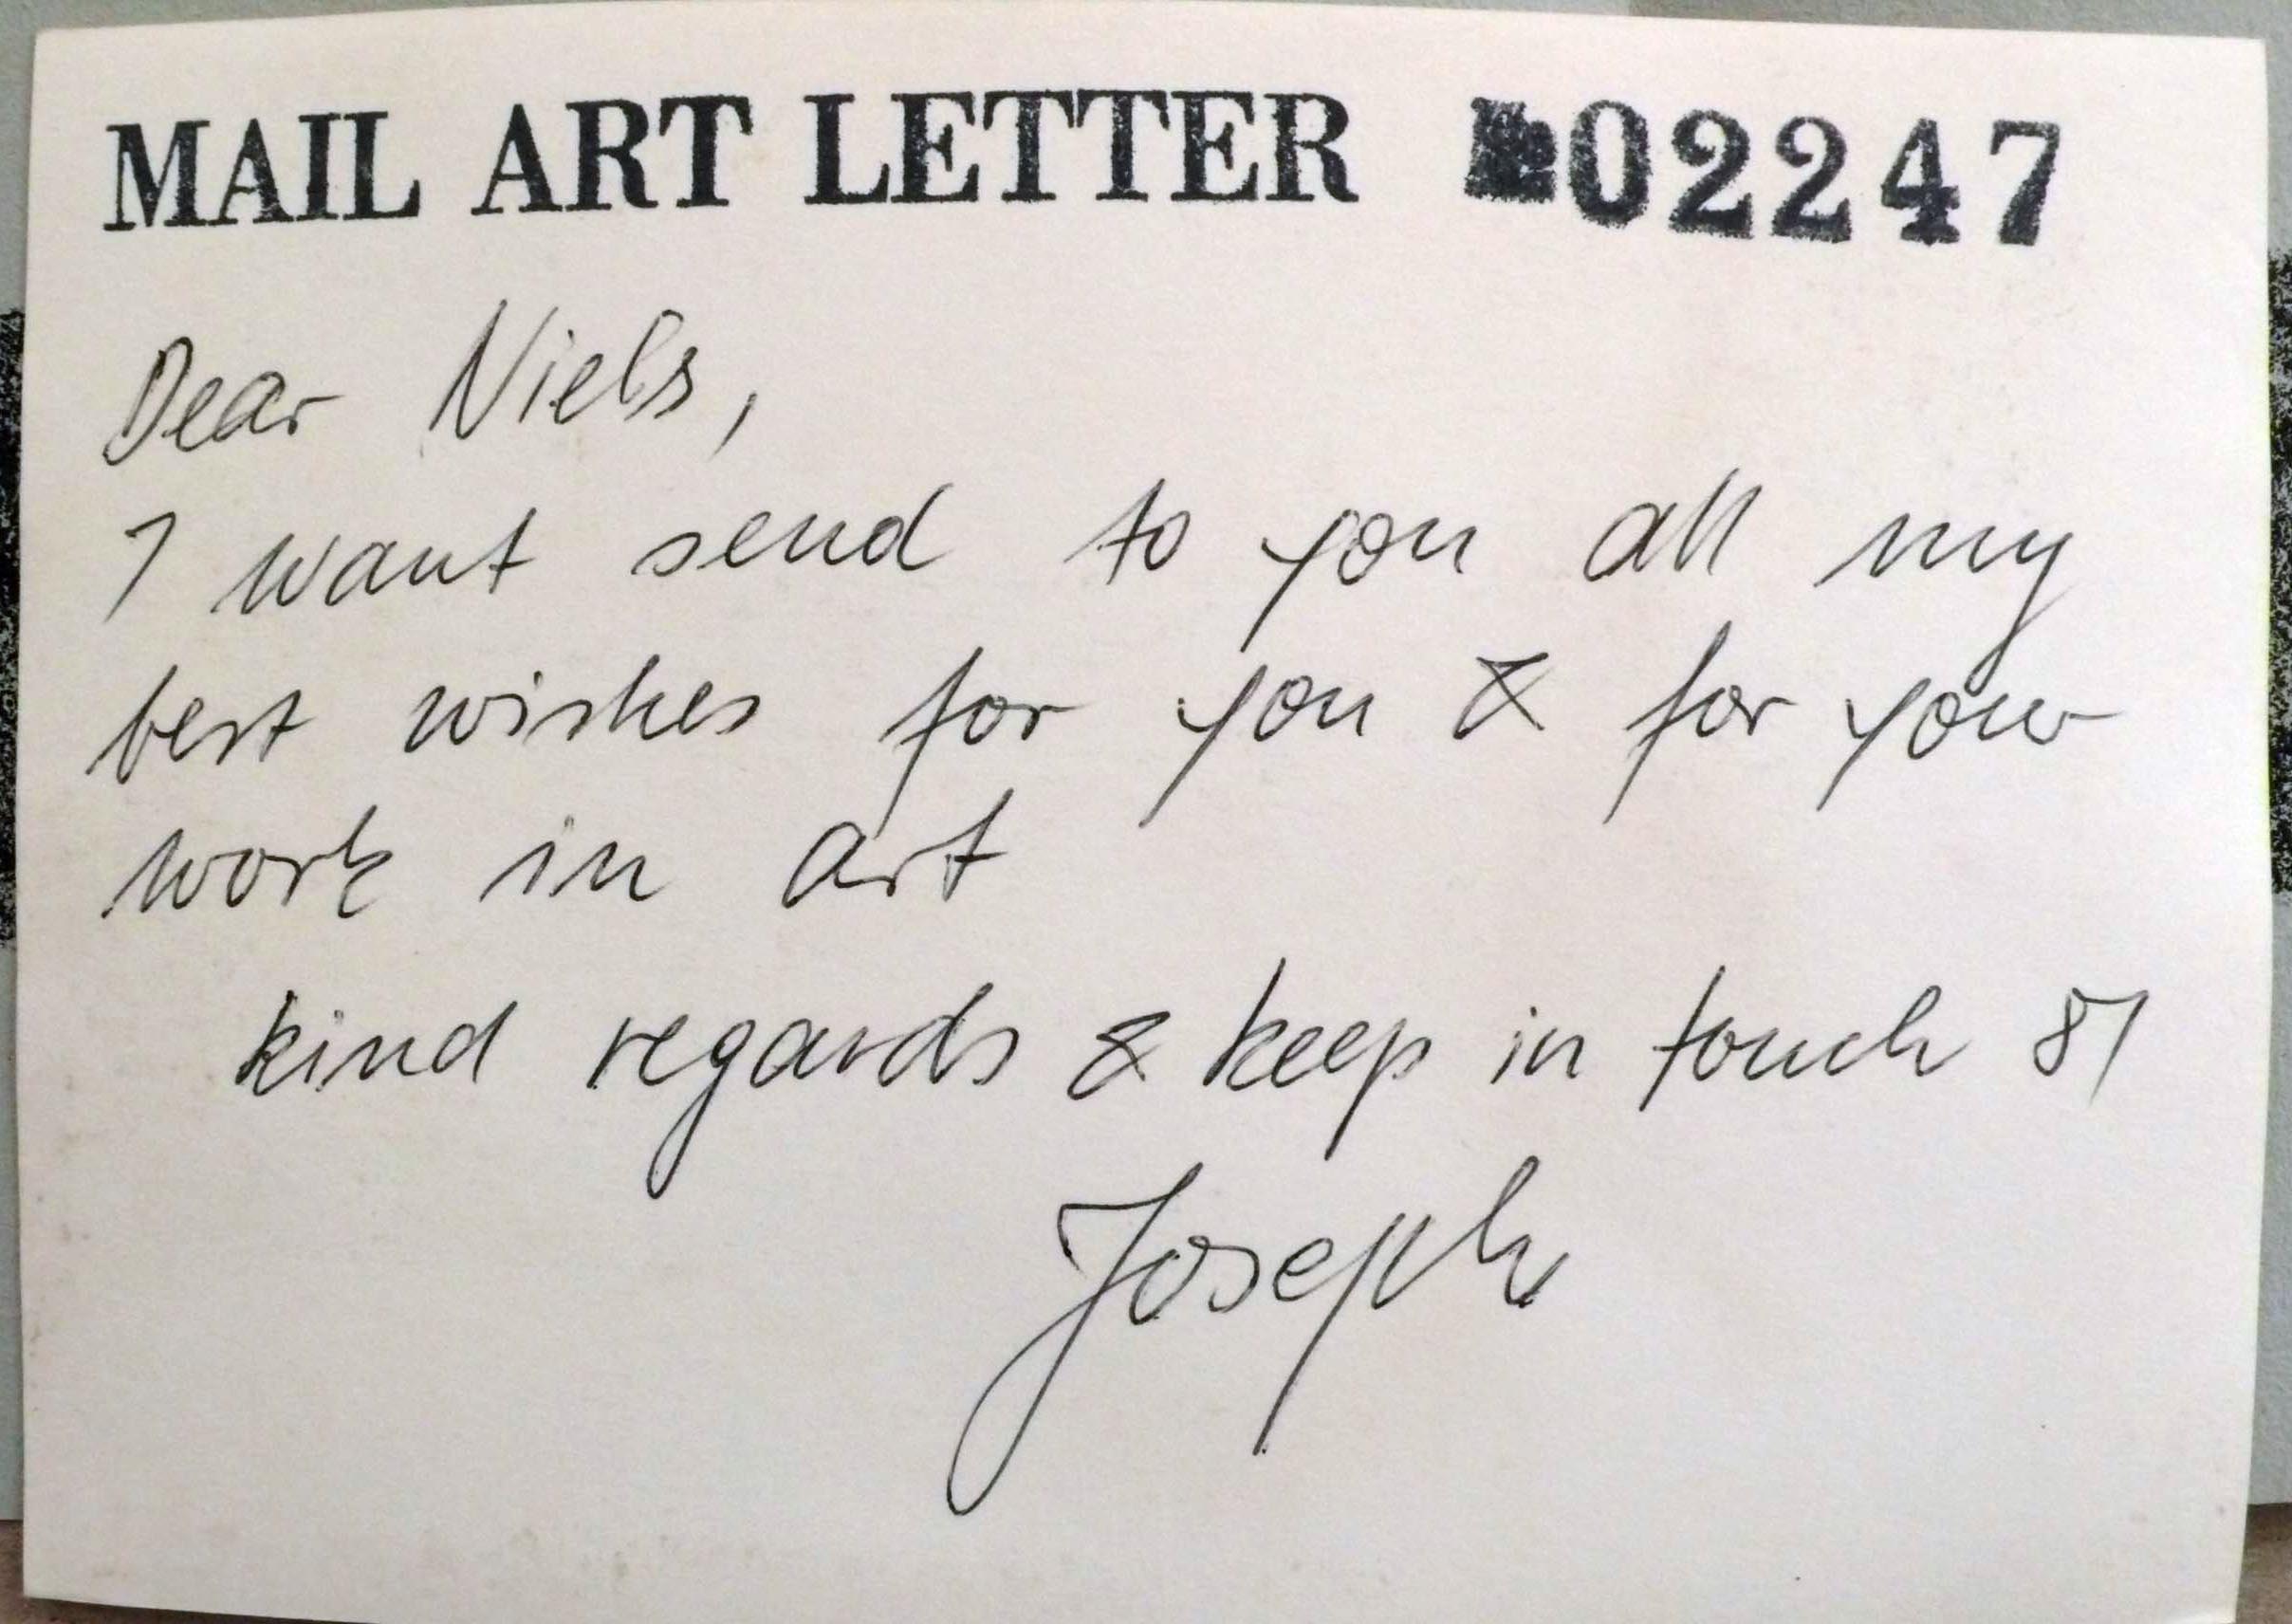 MAIL ART LETTER № 02247
Dear Niels,
I want send to you all my
best wishes for you & for your
work in art
kind regards & keep in touch 87
Joseph